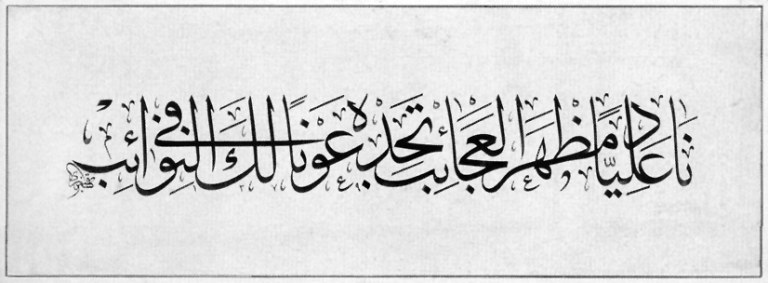 نَادِ عَلِيًّا مَظْهَرَ الْعَجَائِبِ تَجِدْهُ عَوْنًا لَكَ فِي النَّوَائِبِ